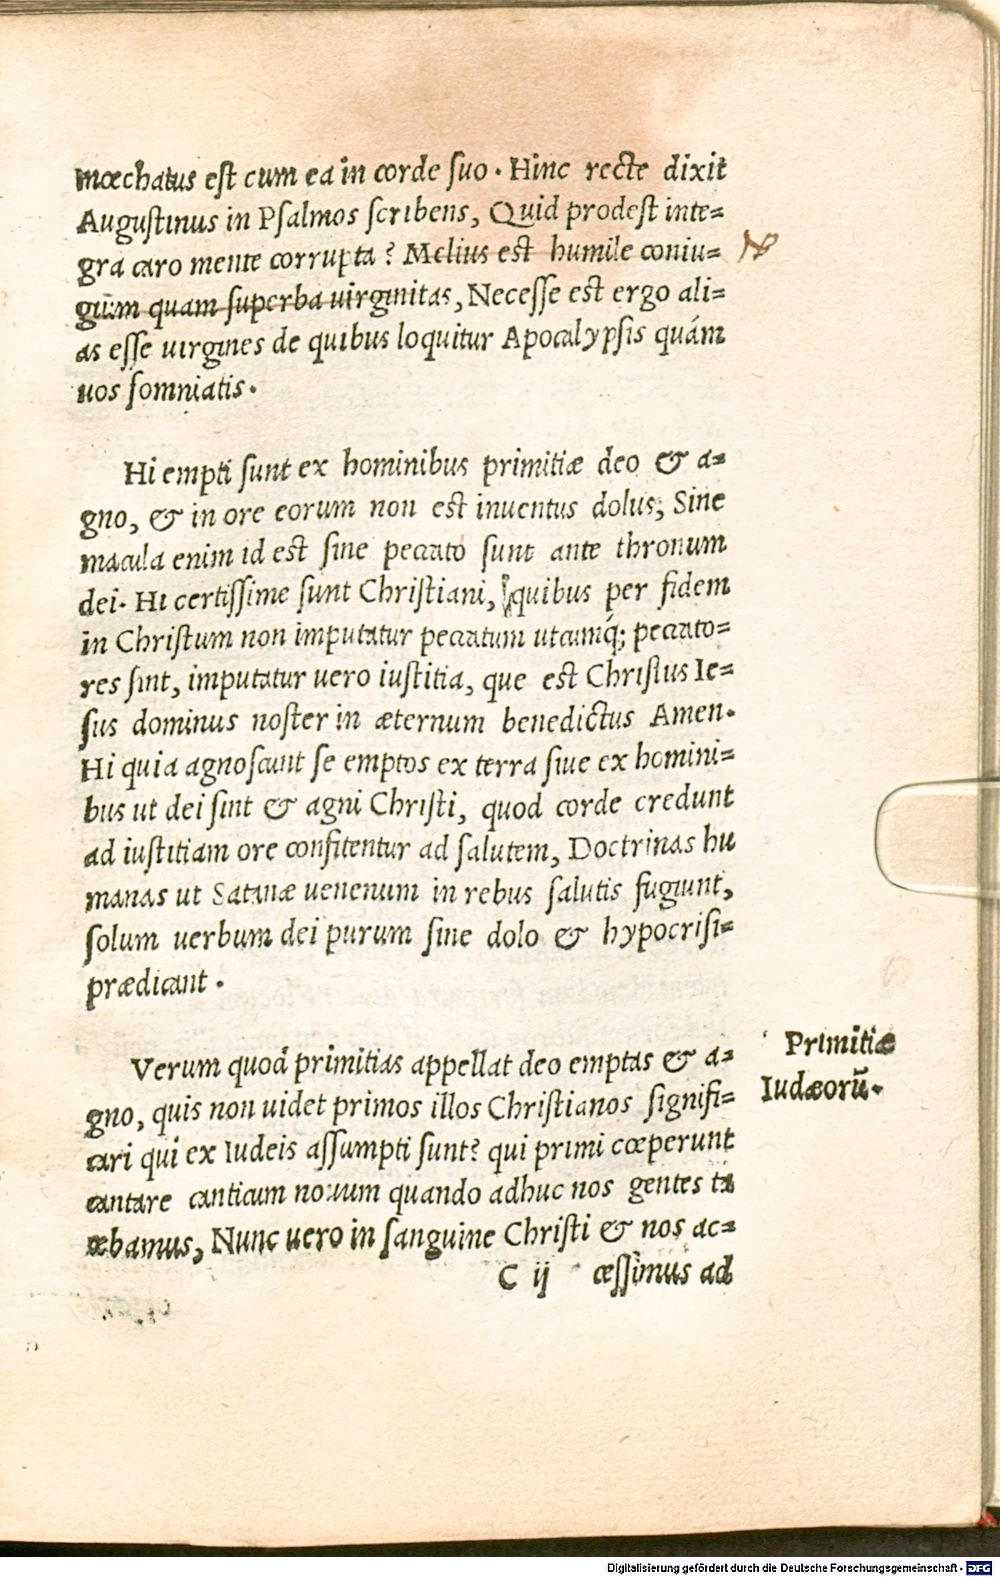 mœchatus est cum ea in corde suo. Hinc recte dixit
Augustinus in Psalmos scribens, Quid prodest inte=
gra caro mente corrupta? Melius est humile coniu=
gium quam superba uirginitas, Necesse est ergo ali=
as esse uirgines de quibus loquitur Apocalypsis quám
uos somniatis.
Hi empti sunt ex hominibus primitiæ deo & a=
gno, & in ore eorum non est inuentus dolus, Sine
macula enim id est sine peccato sunt ante thronum
dei. Hi certissime sunt Christiani, quibus per fidem
in Christum non imputatur peccatum utcumq́; peccato=
res sint, imputatur uero iustitia, que est Christus Ie=
sus dominus noster in æternum benedictus Amen.
Hi quia agnoscunt se emptos ex terra siue ex homini=
bus ut dei sint & agni Christi, quod corde credunt
ad iustitiam ore confitentur ad salutem, Doctrinas hu
manas ut Satanæ uenenum in rebus salutis fugiunt,
solum uerbum dei purum sine dolo & hypocrisi=
prædicant.
Verum quod primitias appellat deo emptas & a=
gno, quis non uidet primos illos Christianos signifi=
cari qui ex Iudeis assumpti sunt? qui primi cœperunt
cantare canticum nouum quando adhuc nos gentes ta
cebamus, Nunc uero in sanguine Christi & nos ac=
C ij cessimus ad
Primitiæ
Iudæorũ.
Digitalisierung gefördert durch die Deutsche Forschungsgemeinschaft - DFG